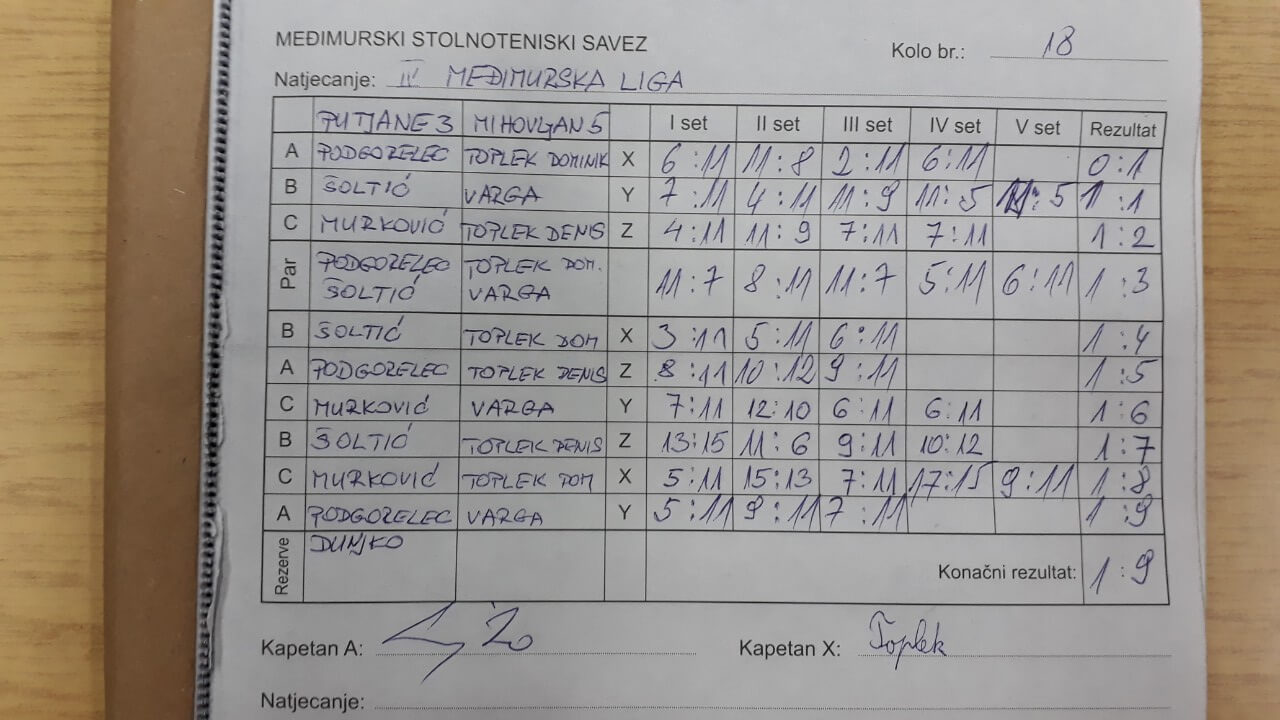 MEĐIMURSKI STOLNOTENISKI SAVEZ
Kolo br.: 18
Natjecanje: IV MEĐIMURSKA LIGA
PUTJANE 3 MIHOVLJAN 5 I set II set III set IV set V set Rezultat
A PODGORELEC TOPLEK DOMINIK X 6:11 11:8 2:11 6:11 0:1
B ŠOLTIĆ VARGA Y 7:11 4:11 11:9 11:5 11:5 1:1
C MURKOVIĆ TOPLEK DENIS Z 4:11 11:9 7:11 7:11 1:2
Par PODGORELEC TOPLEK DOM. 11:7 8:11 11:7 5:11 6:11 1:3
ŠOLTIĆ VARGA
B ŠOLTIĆ TOPLEK DOM X 3:11 5:11 6:11 1:4
A PODGORELEC TOPLEK DENIS Z 8:11 10:12 9:11 1:5
C MURKOVIĆ VARGA Y 7:11 12:10 6:11 6:11 1:6
B ŠOLTIĆ TOPLEK DENIS Z 13:15 11:6 9:11 10:12 1:7
C MURKOVIĆ TOPLEK DOM X 5:11 15:13 7:11 17:15 9:11 1:8
A PODGORELEC VARGA Y 5:11 9:11 7:11 1:9
Rezerve DUNJKO
Konačni rezultat: 1:9
Kapetan A: Kapetan X: Toplek
Natjecanje: